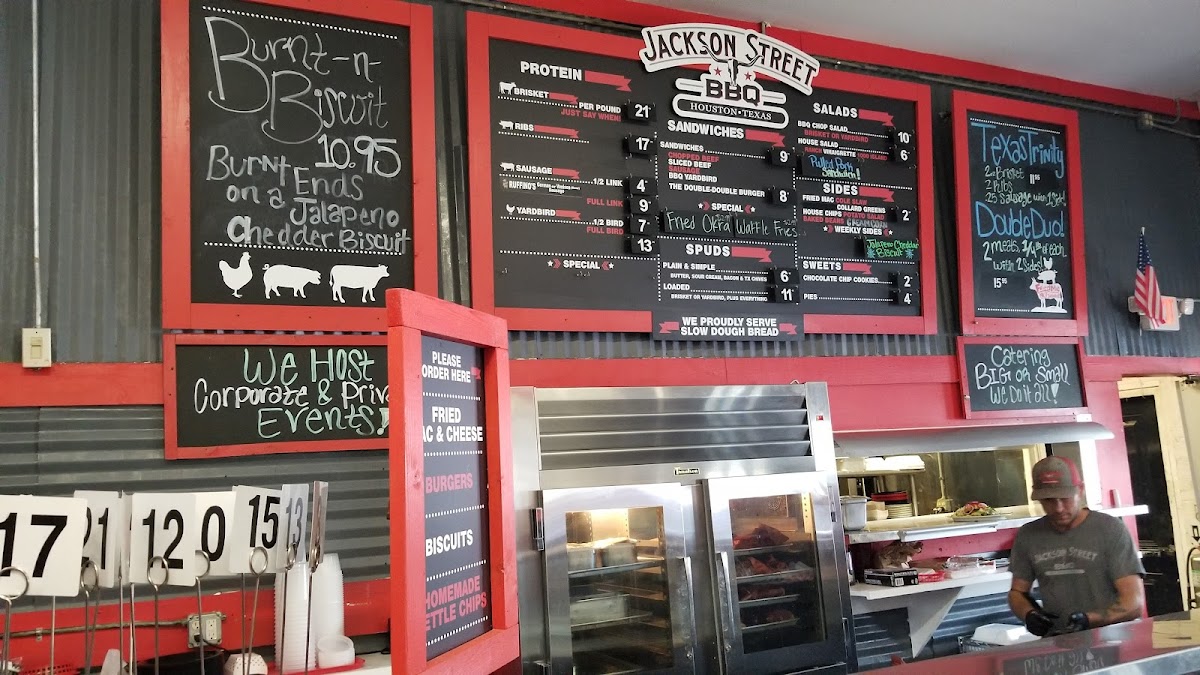 Burnt-n-
Biscuit
10.95
Burnt Ends
on a Jalapeno
Chedder Biscuit
We Host
Corporate & Priv
Events!
JACKSON STREET
BBQ
HOUSTON • TEXAS
PROTEIN
BRISKET
PER POUND 21
JUST SAY WHEN!
RIBS 17
SAUSAGE
RUFFINO'S
1/2 LINK 4
FULL LINK 9
YARDBIRD
1/2 BIRD 7
FULL BIRD 13
SPECIAL
SANDWICHES
SANDWICHES 9
CHOPPED BEEF
SLICED BEEF
SAUSAGE
BBQ YARDBIRD
THE DOUBLE-DOUBLE BURGER 8
SPECIAL
Fried Okra Waffle Fries
SPUDS
PLAIN & SIMPLE 6
BUTTER, SOUR CREAM, BACON & TX CHIVES
LOADED 11
BRISKET OR YARDBIRD, PLUS EVERYTHING
WE PROUDLY SERVE
SLOW DOUGH BREAD
SALADS
BBQ CHOP SALAD 10
BRISKET OR YARDBIRD
HOUSE SALAD 6
RANCH VINAIGRETTE 1000 ISLAND
Pulled Pork
Sandwich!
SIDES
FRIED MAC COLE SLAW
COLLARD GREENS
HOUSE CHIPS POTATO SALAD 2
BAKED BEANS CREAM CORN
WEEKLY SIDES
Jalapeno Cheddar
Biscuit
SWEETS
CHOCOLATE CHIP COOKIES 2
PIES 4
Texas Trinity
2 Brisket
2 Ribs
.25 Sausage with 1 Side!
Double Duo!
2 Meats, 1/4 lb of each
with 2 Sides!
15.95
Catering
BIG or Small
We Do it all!
PLEASE
ORDER HERE
FRIED
AC & CHEESE
BURGERS
BISCUITS
HOMEMADE
ETTLE CHIPS
17
21
12
0
15
13
JACKSON STREET
BBQ